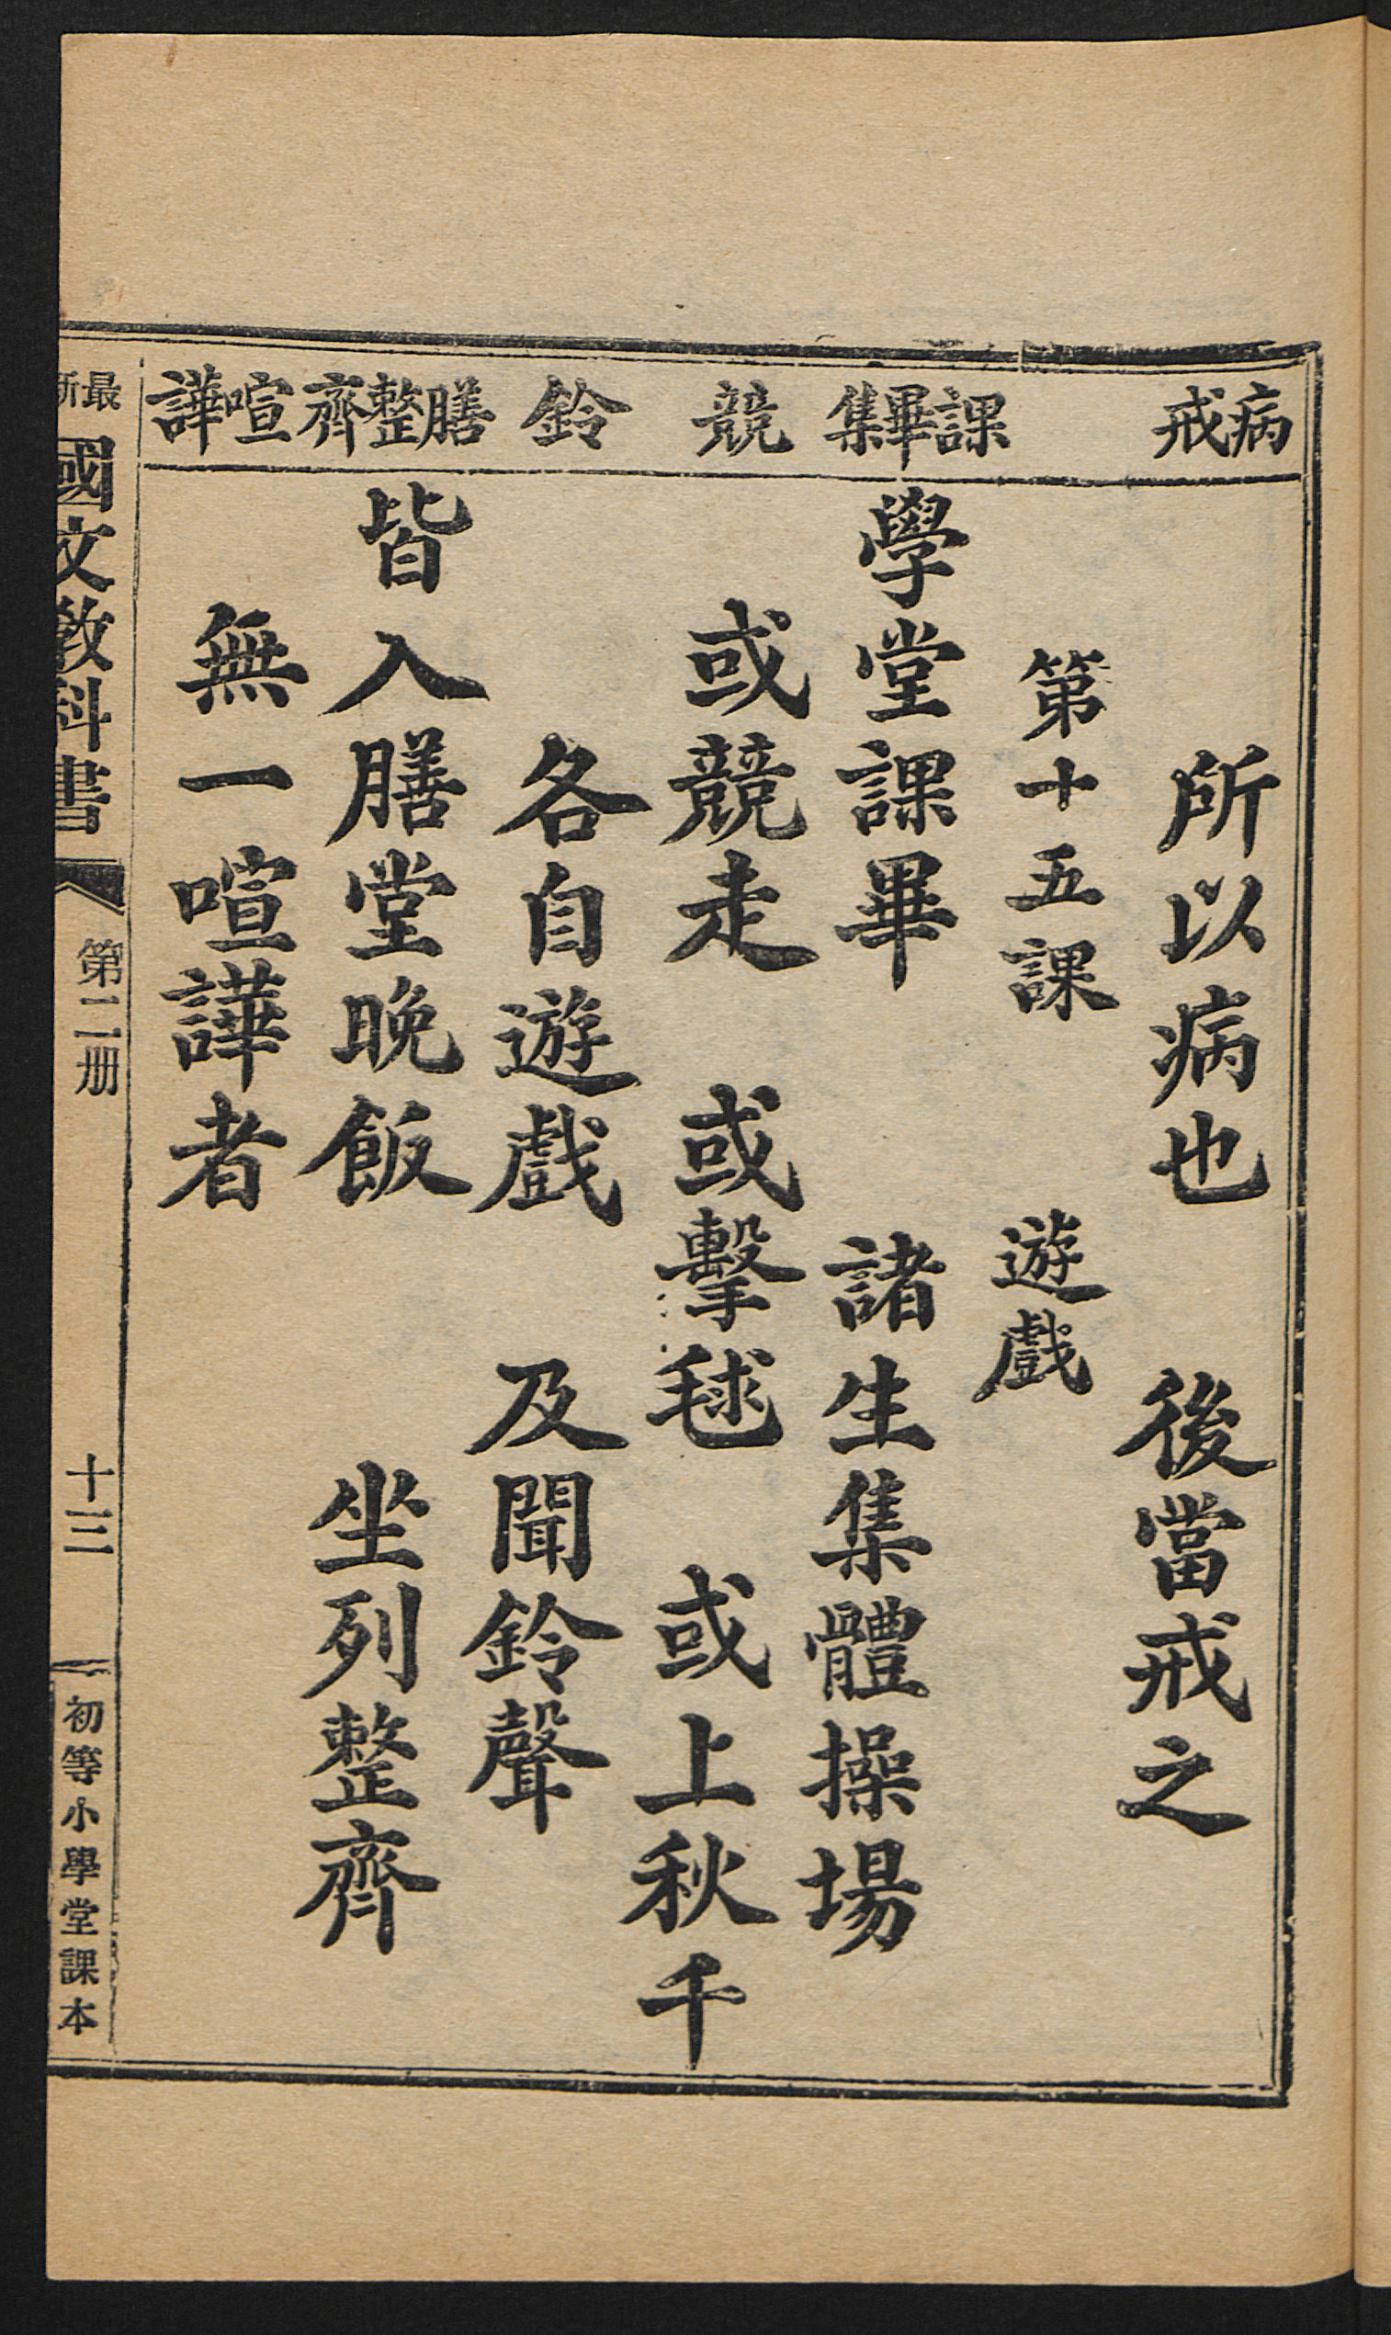 病戒
課畢集
競
鈴
膳整齊
喧譁
所以病也　後當戒之
第十五課　遊戲
學堂課畢　諸生集體操場
或競走　或擊毬　或上秋千
各自遊戲　及聞鈴聲
皆入膳堂晚飯　坐列整齊
無一喧譁者
最新國文教科書　第二册　十三　初等小學堂課本